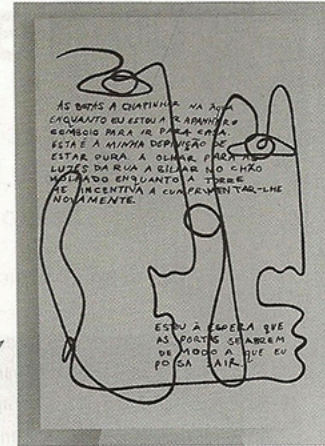 AS BOTAS A CHAPINHAR NA ÁGUA
ENQUANTO EU ESTOU A APANHAR O
COMBOIO PARA IR PARA CASA.
ESTA É A MINHA DEFINIÇÃO DE
ESTAR OURA. A OLHAR PARA AS
LUZES DA RUA A BILHAR NO CHÃO
MOLHADO ENQUANTO A TORRE
ME INCENTIVA A CUMPRIMENTAR-LHE
NOVAMENTE.
ESTOU À ESPERA QUE
AS PORTAS SE ABREM
DE MODO A QUE EU
POSSA SAIR.